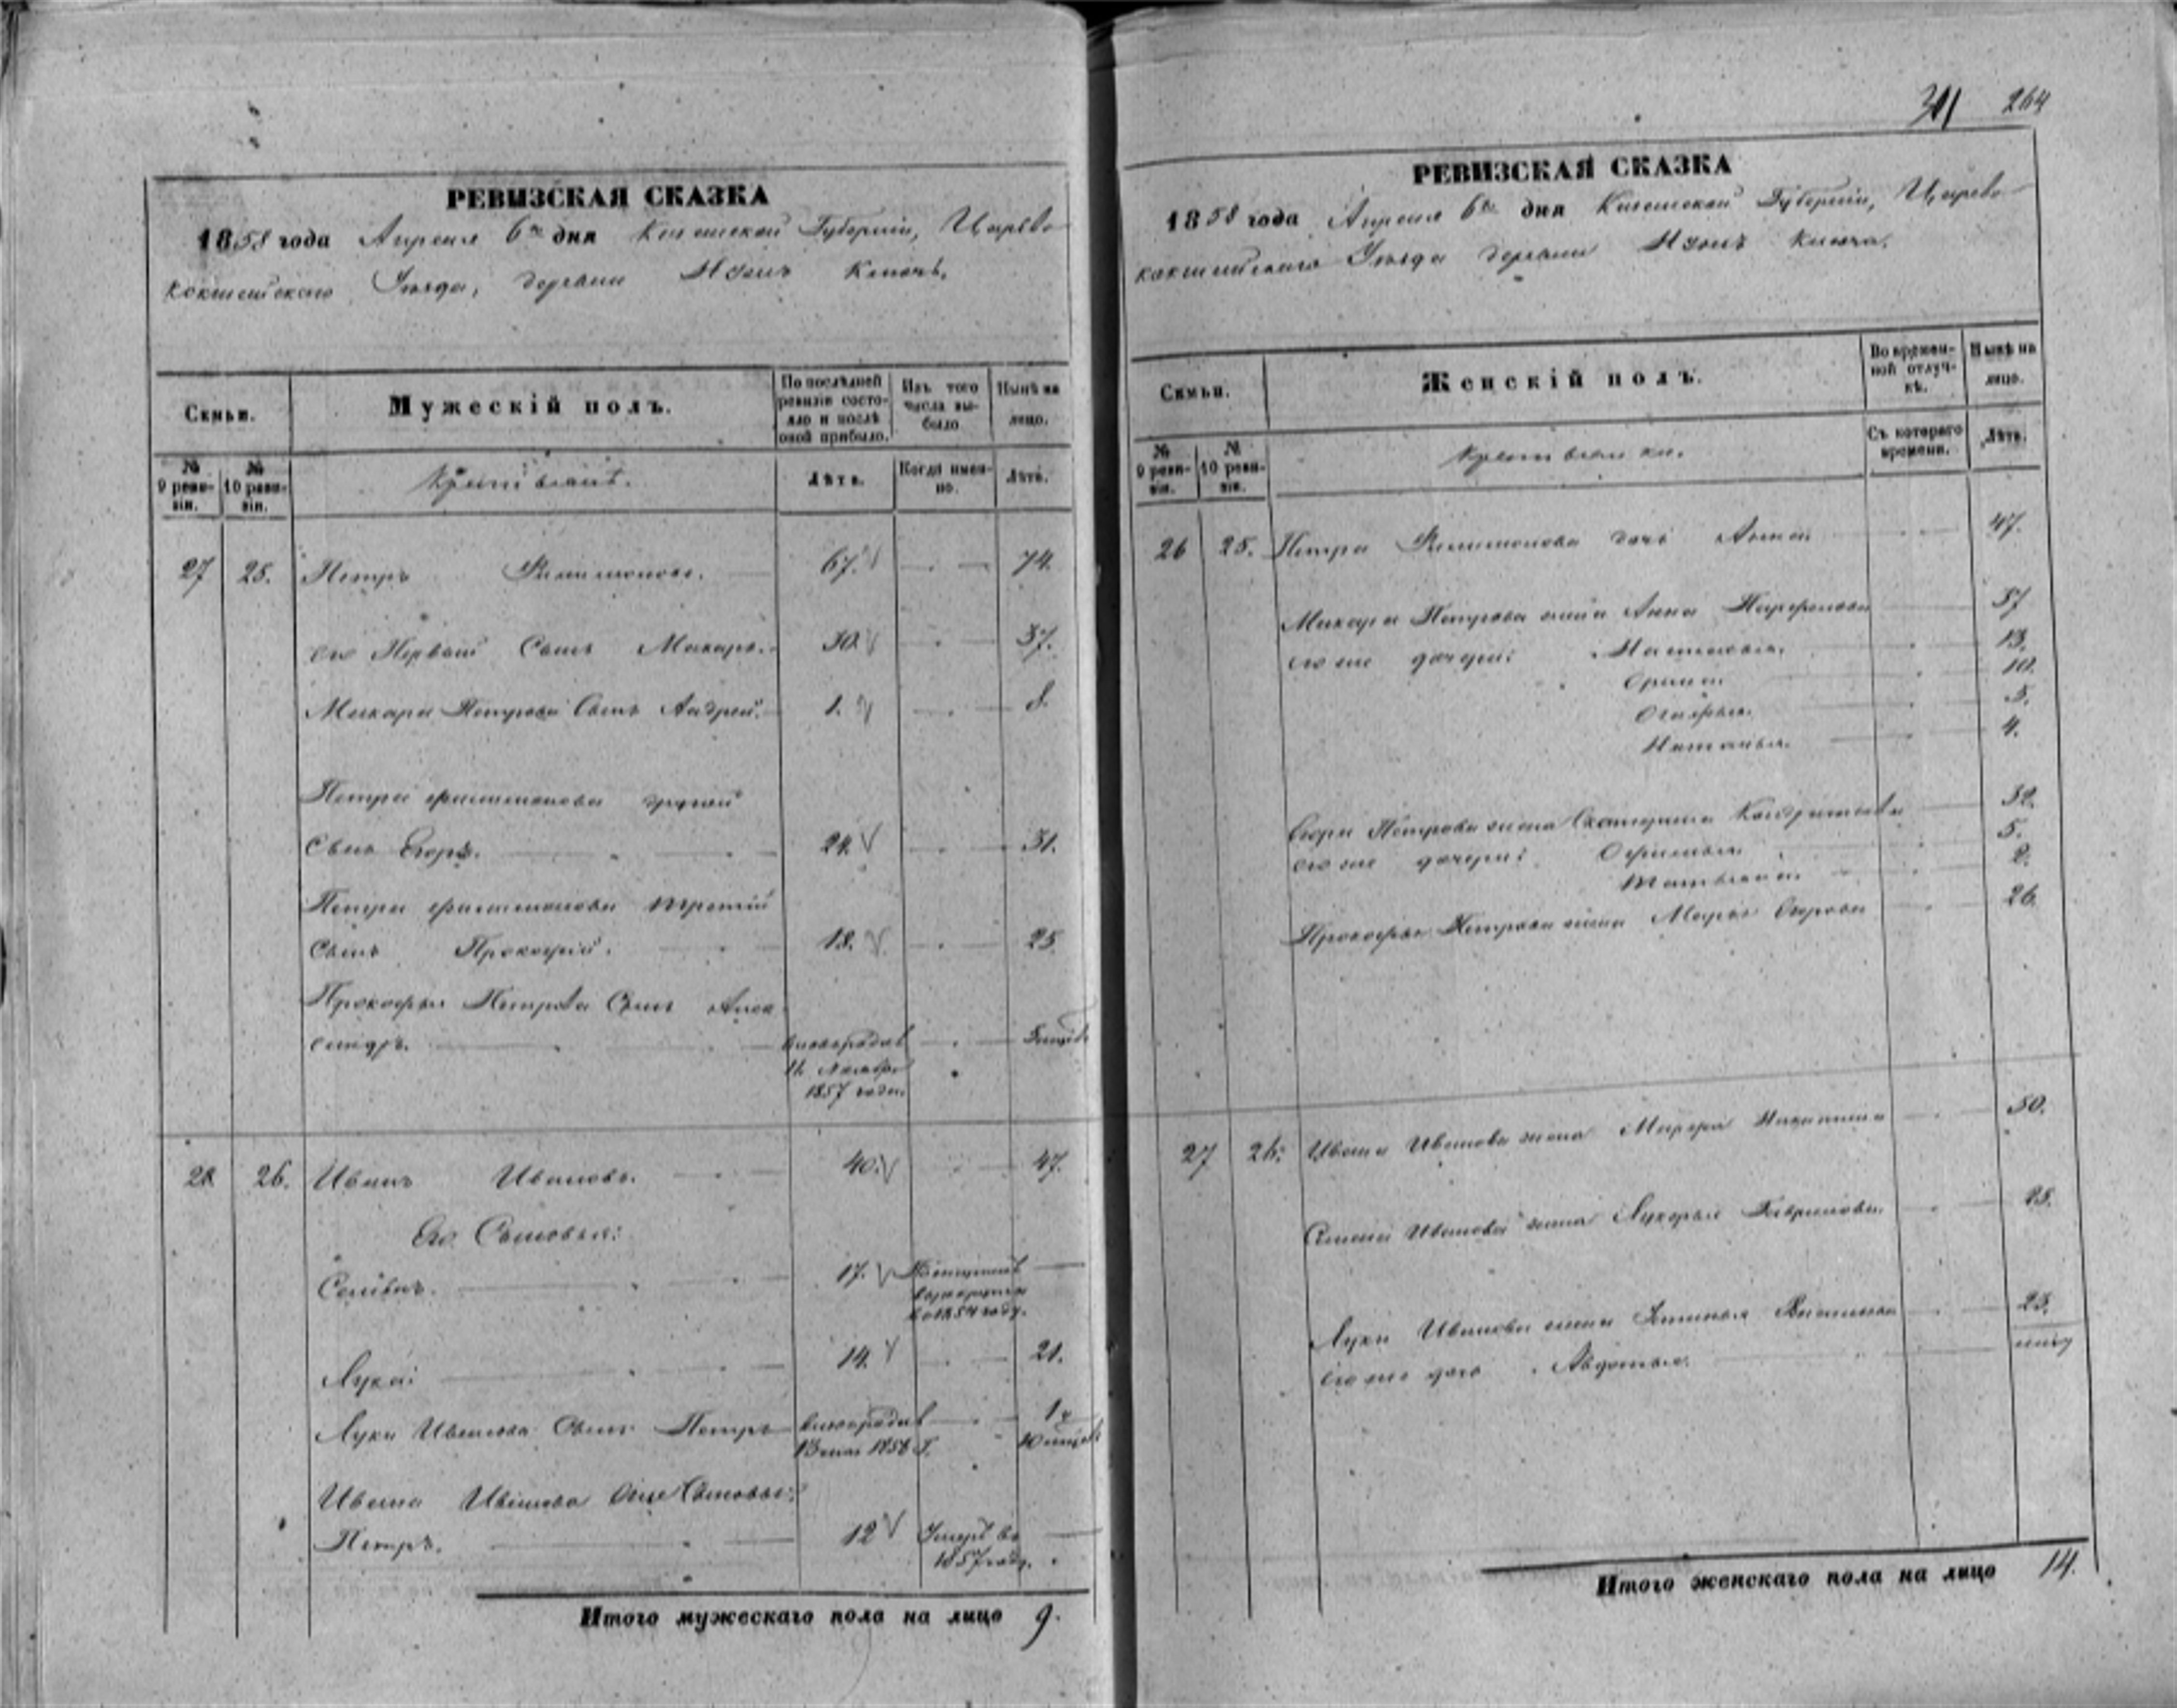 РЕВИЗСКАЯ СКАЗКА
1858 года Апреля 6го дня Казанской Губерніи, Царево
кокшайскаго Уѣзда, деревни Кинеръ.
Семьи.
Мужескій полъ.
По послѣдней ревизіи состояло и послѣ оной прибыло.
Изъ того числа выбыло.
Нынѣ на лицо.
№ 9 ревизіи.
№ 10 ревизіи.
Крестьянъ.
Лѣта.
Когда именно.
Лѣта.
27 25. Петръ Филимоновъ. 67. 74.
его Первый Сынъ Макаръ. 30. 37.
Макара Петрова Сынъ Андрей. 1. 8.
Петра Филимонова другой
Сынъ Егоръ. 24. 31.
Петра Филимонова третій
Сынъ Прокофій. 18. 25
Прокофья Петрова Сынъ Алек
сандръ. вновьрожден 5 мѣсяц.
11 Ноября
1857 года.
28 26. Иванъ Ивановъ. 40. 47.
Его Сыновья:
17.
1854 году.
Лука: 14. 21.
Луки Иванова Сынъ Петръ вновьрожден 1 и
1856 Г. 10 мѣсяц.
Ивана Иванова Сыновья:
Петръ. 12 Умеръ въ
1857 году.
Итого мужескаго пола на лицо 9.
301 264
РЕВИЗСКАЯ СКАЗКА
1858 года Апреля 6го дня Казанской Губерніи, Царево
кокшайскаго Уѣзда деревни
Семьи.
Женскій полъ.
Во временной отлучкѣ.
Нынѣ на лицо.
№ 9 ревизіи.
№ 10 ревизіи.
Крестьянки.
Съ котораго времени.
Лѣта.
26 25. Петра Филимонова дочь Анна 47.
Макара Петрова жена Анна Парфенова 37
его же дочери: 13.
Орина 10.
5.
Наталья. 4.
Егора Петрова жена Катерина Кондратьева 32.
его же дочери: 5.
Татьяна. 2.
Прокофья Петрова жена Марья Егорова 26.
27 26. Ивана Иванова жена Марфа 50.
Иванова жена Лукерья Гаврилова. 25.
Луки Иванова жена 23.
его же дочь Авдотья.
Итого женскаго пола на лицо 14.